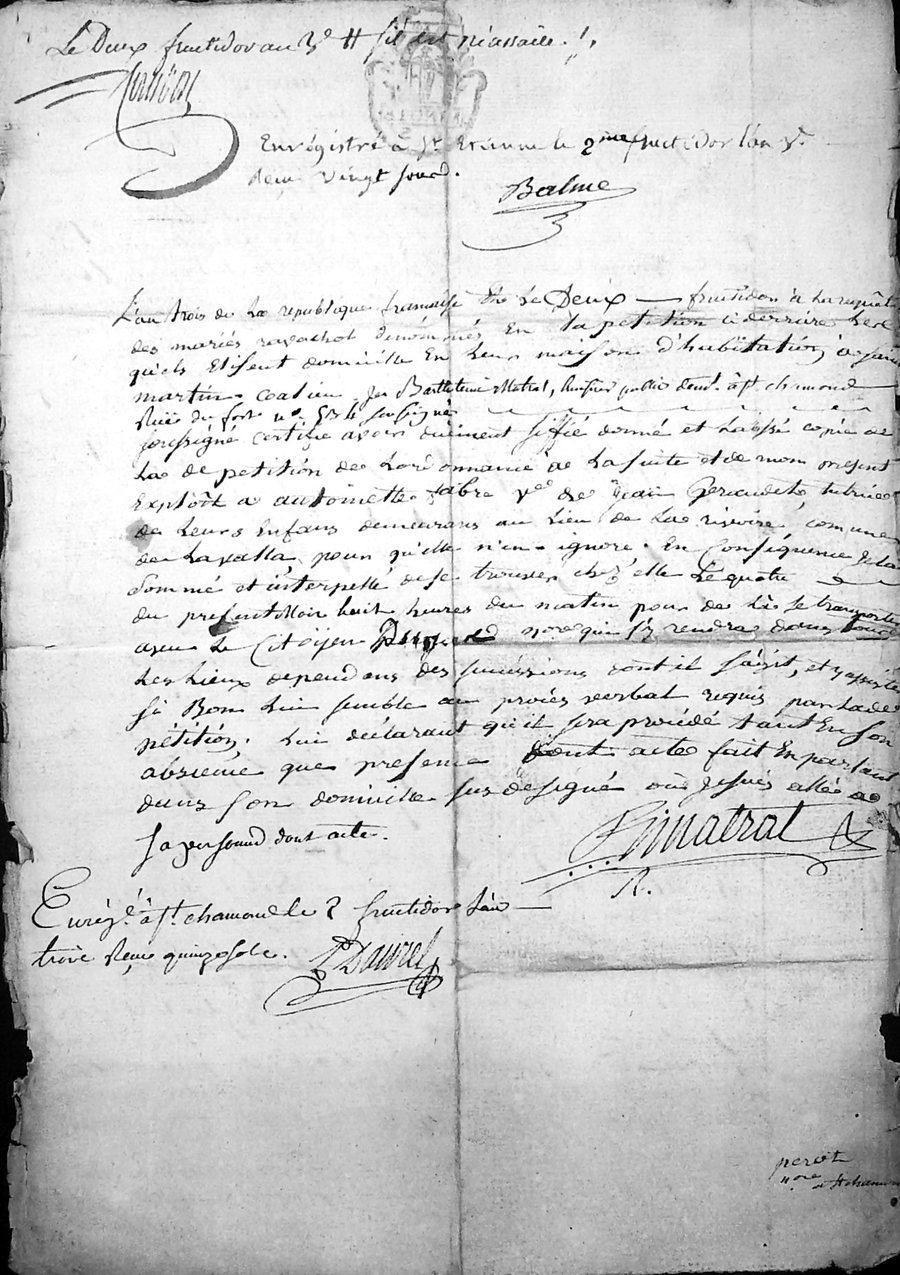 Le Deux fructidor an 3e # s'il est nécessaire ./.
Enrégistré à St Etienne le 2me fructidor l'an 3e
Reçu vingt sous.
Balme
L'an trois de La republique française Et Le Deux — fructidor à La requête
des mariés ravachol dénommés En la petition ci derrière
qu'ils Elisent domicille En Leur maison d'habitation, a saint
martin coalieu Je Barthelemi Matrat, huissier public demt. à St chamond
Rüe du fort no. soussigné
soussigné certifie avoir düement siffié donné et Laissé copie de
La de petition de Lordonnance a La suite et de mon present
Exploit a antoinette fabre ve de Jean tutrice
de Leurs Enfans demeurans au Lieu de La rivoire, commune
de Lavalla, pour qu'elle n'en ignore. En Conséquence Je La
Sommé et interpellé de se trouver chez elle Le quatre
du present Mois huit heures du matin pour de Là se transporter
avec Le Citoyen nore qui s'y rendra dans tous
Les Lieux dependans des successions dont il s'agit, et y assister
si Bon Lui semble au procès verbal requis par Lade
pétition. Lui déclarant qu'il sera procédé tant En son
absence que presence dont acte fait En parlant
dans son domicille sus désigné où Je suis allé a
sa personne dont acte.
Bmatrat
R.
Enrég.é à St chamond le 2 fructidor L'an —
trois Reçu quinze sols.
Dauvel
perrot
nore a St chamond